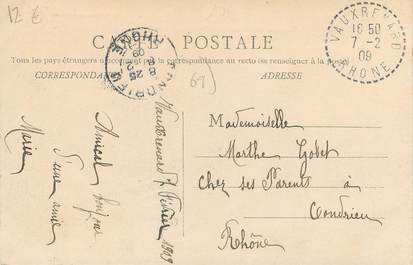 12 €
CARTE POSTALE
Tous les pays étrangers n'acceptent pas la correspondance au recto (se renseigner à la poste)
CORRESPONDANCE
ADRESSE
VAUXRENARD
16 50
7 - 2
09
RHONE
CONDRIEU
RHONE
8
25
09
69
Vauxrenard 7 Février 1909
Amical bonjour
d'une amie
Marie
Mademoiselle
Marthe Gobet
Chez ses Parents à
Condrieu
Rhône